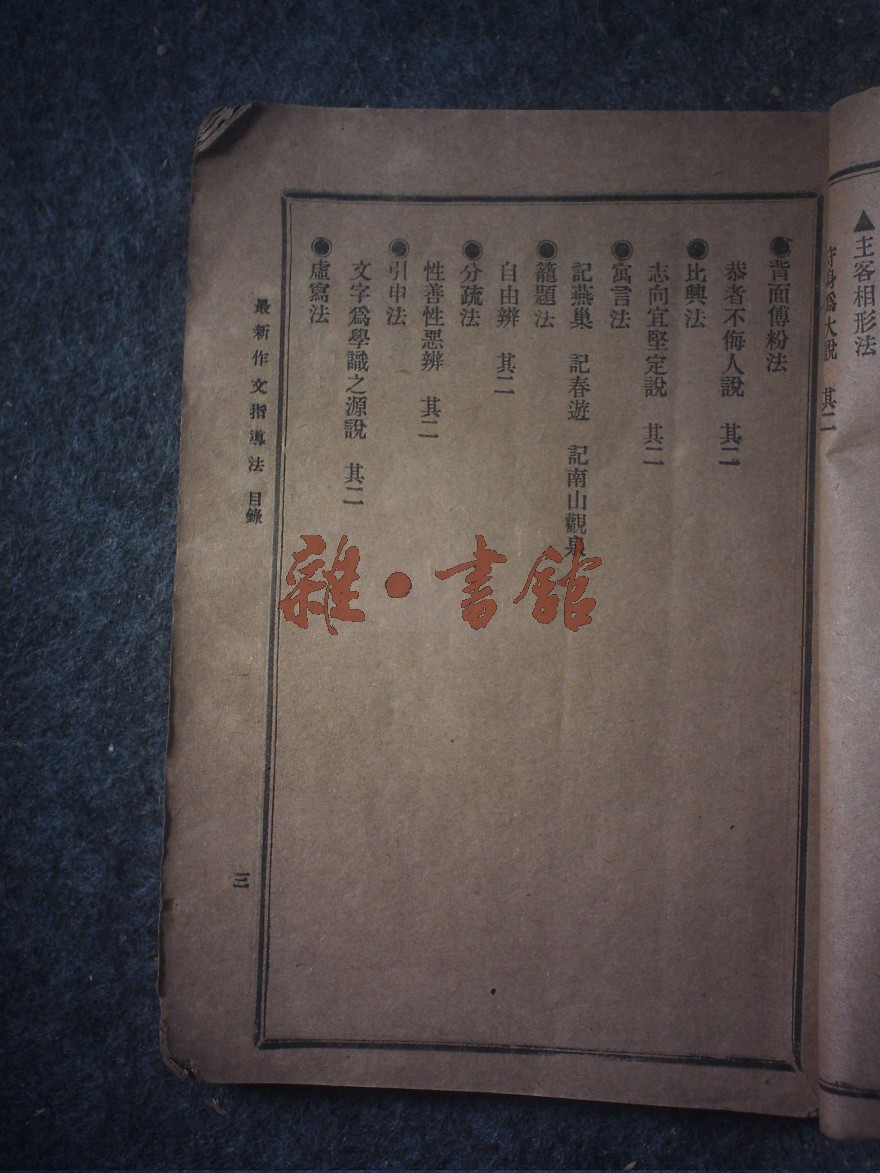 ▲主客相形法
守身爲大說　其二
◉背面傅粉法
恭者不侮人說　其二
◉比興法
志向宜堅定說　其二
◉寓言法
記燕巢　記春遊　記南山觀泉
◉籍題法
自由辨　其二
◉分疏法
性善性惡辨　其二
◉引申法
文字爲學識之源說　其二
◉虛寫法
最新作文指導法　目錄
三
雜·書館